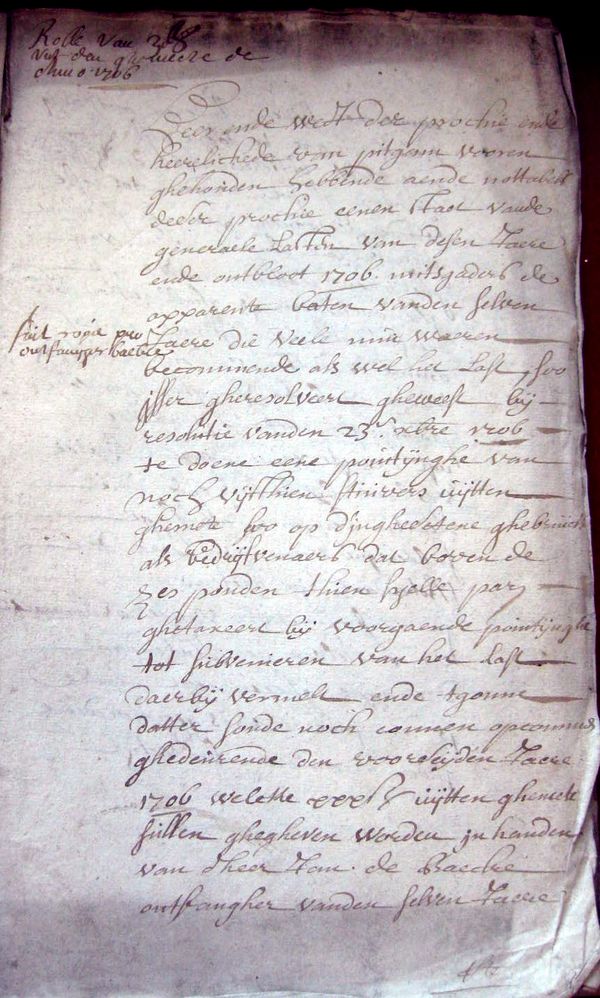 Rolle van
uut den ghemete de
anno 1706
Heer ende wedt der prochie ende
heerlichede van pitgam vooren
ghehouden hebbende aende nottabels
deser prochie eenen staet vande
generaele lasten van desen Jaere
ende ontbloot 1706 mitsgaders de
apparente baten vanden selven
fait rooi pro
ontfangher baecke
Jaere die veele min waeren
becommende als wel het last, soo
isser gheresolveert gheweest bij
resolutie vanden 23.e xbre 1706
te doene eene pointijnghe van
noch vijfthien stuivers uijtten
ghemete soo op d'jnghesetene ghebruickers
als bedrijfvenaers dat boven de
zes ponden thien parz
ghetaxeert bij voorgaende pointijnghe
tot subvenieren van het last
daerbij vermelt ende tgonne
datter soude noch connen opcommen
ghedeurende den voorseijden Jaere
1706 welcke xxx uijtten ghemete
sullen ghegheven worden in handen
van d'heer Jan de Baecke
ontfangher vanden selven Jaere